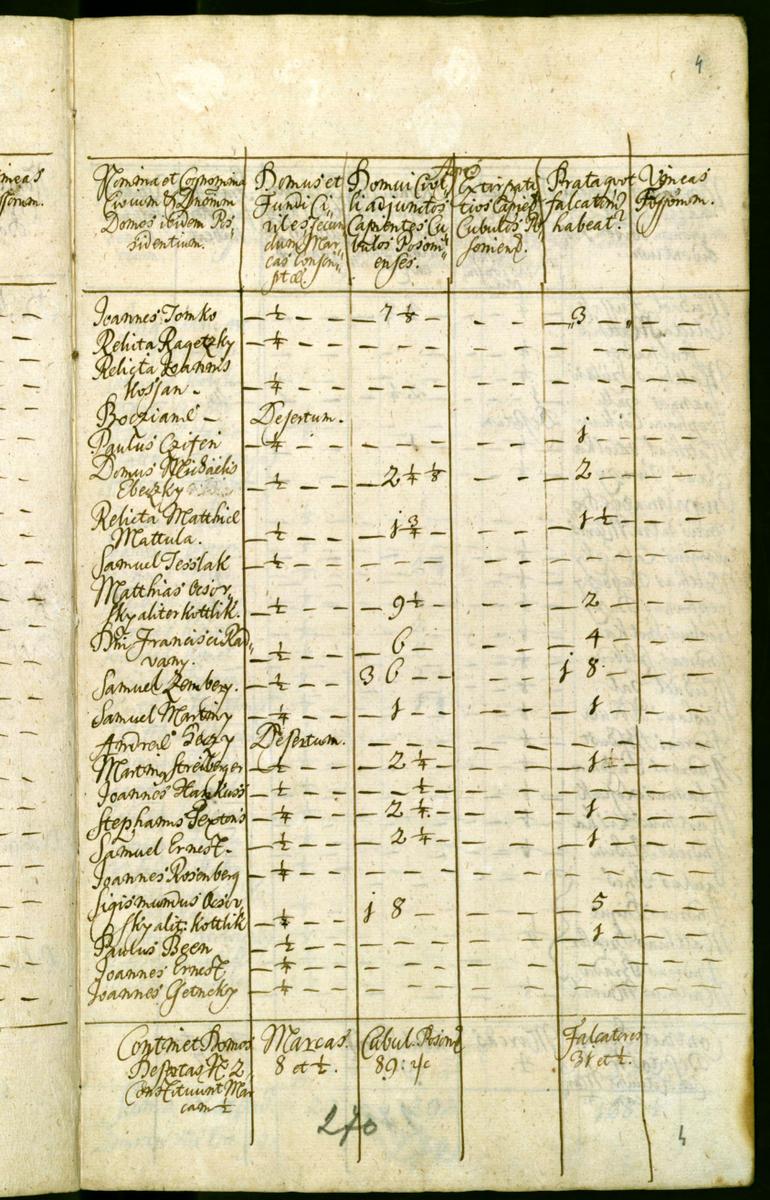 4
Nomina et Cognomina Civium & Dnorum Domos ibidem Possidentium.
Domus et Fundi Civiles secundum Marcas conscriptae.
Domui Civili adjunctos Capientes Cubulos Posonienses.
Extirpatitios Capien: Cubulos Posoniens.
Prata quot falcatorum habeat?
Vineas Fossorum.
Joannes Tomko — ½ — — 7 ⅛ — — — 3 — —
Relicta Ragetzky — ¼ — — — — — — — — — —
Relicta Joannis
Kossan — ¼ — — — — — — — — — —
Bocziane — Desertum.
Paulus Cziferi — ¼ — — — — — — — 1 — — —
Domus Michaelis
Ebeczky — ½ — — 2 ¼ ⅛ — — 2 — — —
Relicta Matthiae
Mattula. — ½ — — 1 ¾ — — — 1 ½ — — —
Samuel Jesslak — ½ — — — — — — — — — —
Matthias Ocsov
skyaliter Kottlik. — ½ — — 9 ½ — — — 2 — — —
Dni Francisci Rad
vany. — ½ — — 6 — — — 4 — — —
Samuel Zembery. — ½ — — 3 6 — — — 1 8 — —
Samuel Martiny — ¼ — — 1 — — — 1 — — —
Andreae Desertum. — — — — — — — —
Martin Streiberger — ½ — — 2 ¼ — — — 1 — —
Joannes — ½ — — — ½ — — — — — — —
Stephanus — ¼ — — 2 ¼ — — — 1 — — —
Samuel Ernest — ½ — — 2 ¼ — — — 1 — — —
Joannes Rosenberg — ¼ — — — — — — — — — —
Sigismundus Ocsov
skyalit: Kottlik — ½ — — 1 8 — — — 5 — — —
Paulus Been — ½ — — — — — — 1 — — —
Joannes Ernest — ¼ — — — — — — — — — —
Joannes Getncky — ¼ — — — — — — — — — —
Continet Domos
Desertas No 2
Constituunt Mar
cam ½
Marcas.
8 et ½.
Cubul. Poson.
89:
Falcatores
38 et ½.
270
4